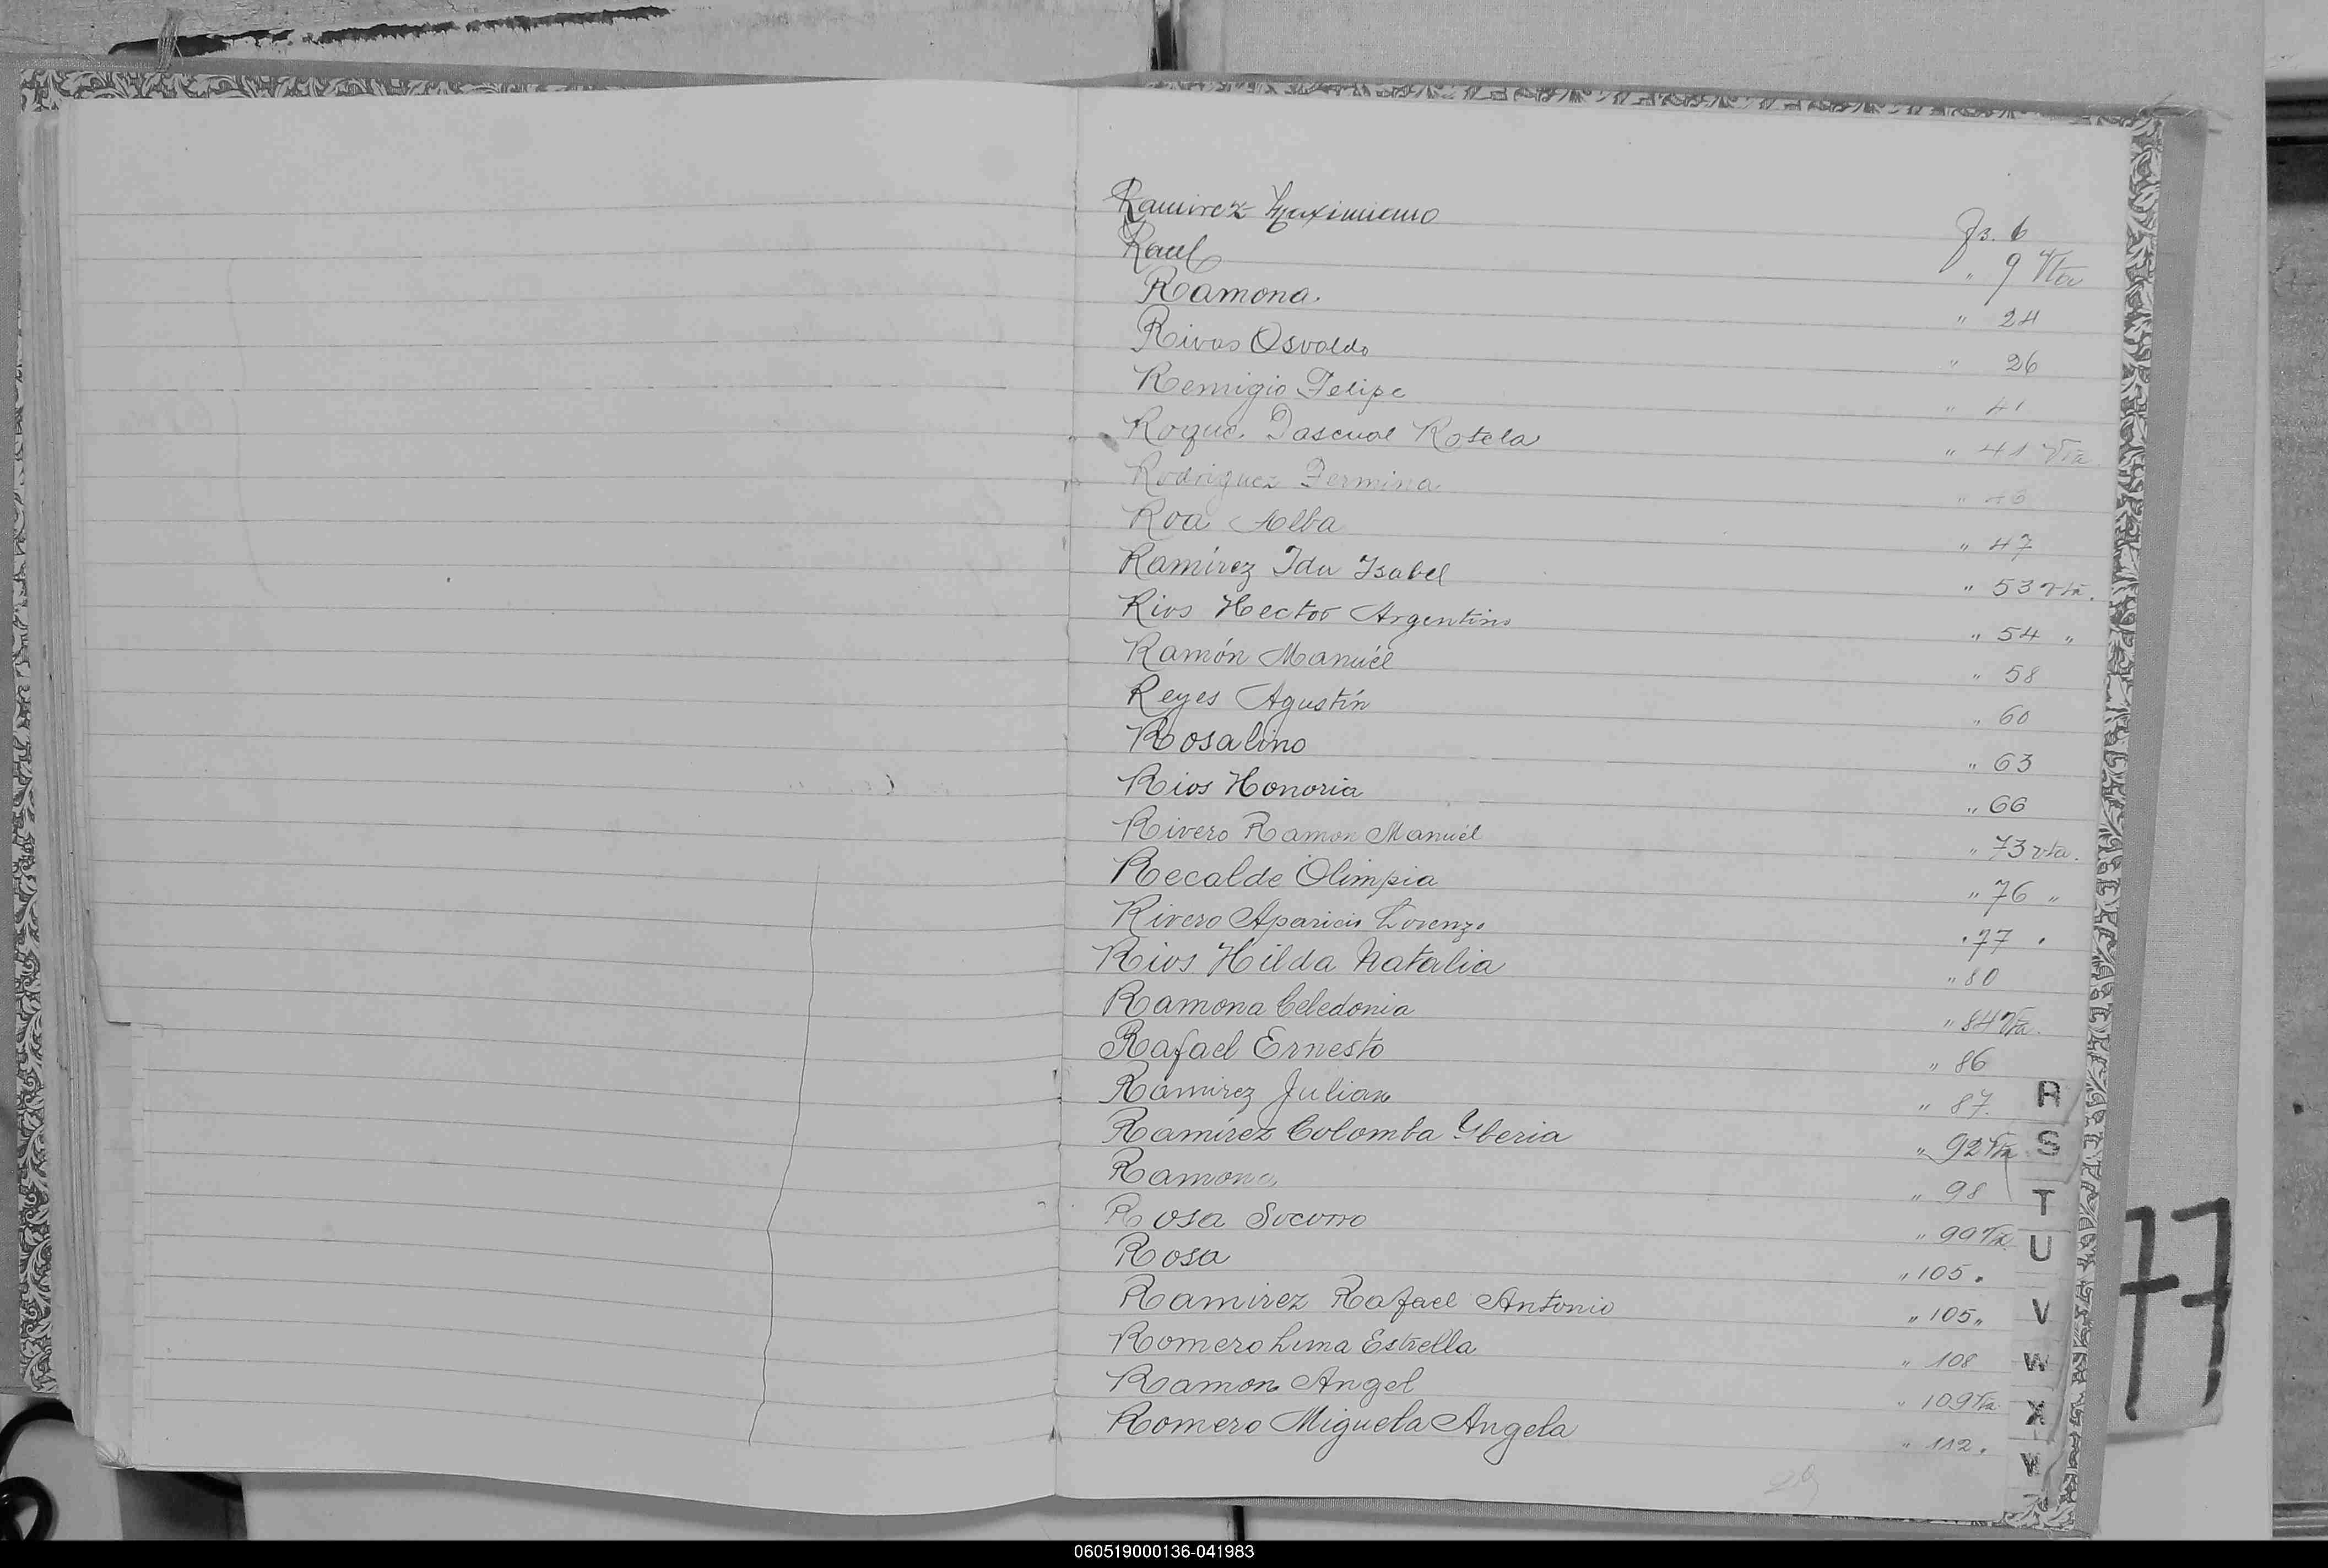 Ramirez Maximiano Fs. 6
Raul " 9 Vta
Ramona. " 24
Rivas Osvaldo " 26
Remigio Felipe " 41
Roque Pascual Rotela " 41 Vta.
Rodriguez Fermina " 46
Roa Alba " 47
Ramírez Ida Isabel " 53 vta.
Rios Hector Argentino " 54 "
Ramón Manuél " 58
Reyes Agustín " 60
Rosalino " 63
Rios Honoria " 66
Rivero Ramon Manuél " 73 vta.
Recalde Olimpia " 76 "
Rivero Aparicio Lorenzo " 77 "
Rios Hilda Natalia " 80
Ramona Celedonia " 84 Vta.
Rafael Ernesto " 86
Ramirez Julian " 87.
Ramírez Colomba Yberia " 92 Vta
Ramona " 98
Rosa Socorro " 99 Vta.
Rosa " 105 "
Ramirez Rafael Antonio " 105 "
Romero Luna Estrella " 108
Ramon Angel " 109 Vta.
Romero Miguela Angela " 112.
29
R
S
T
U
V
W
X
Y
77
060519000136-041983